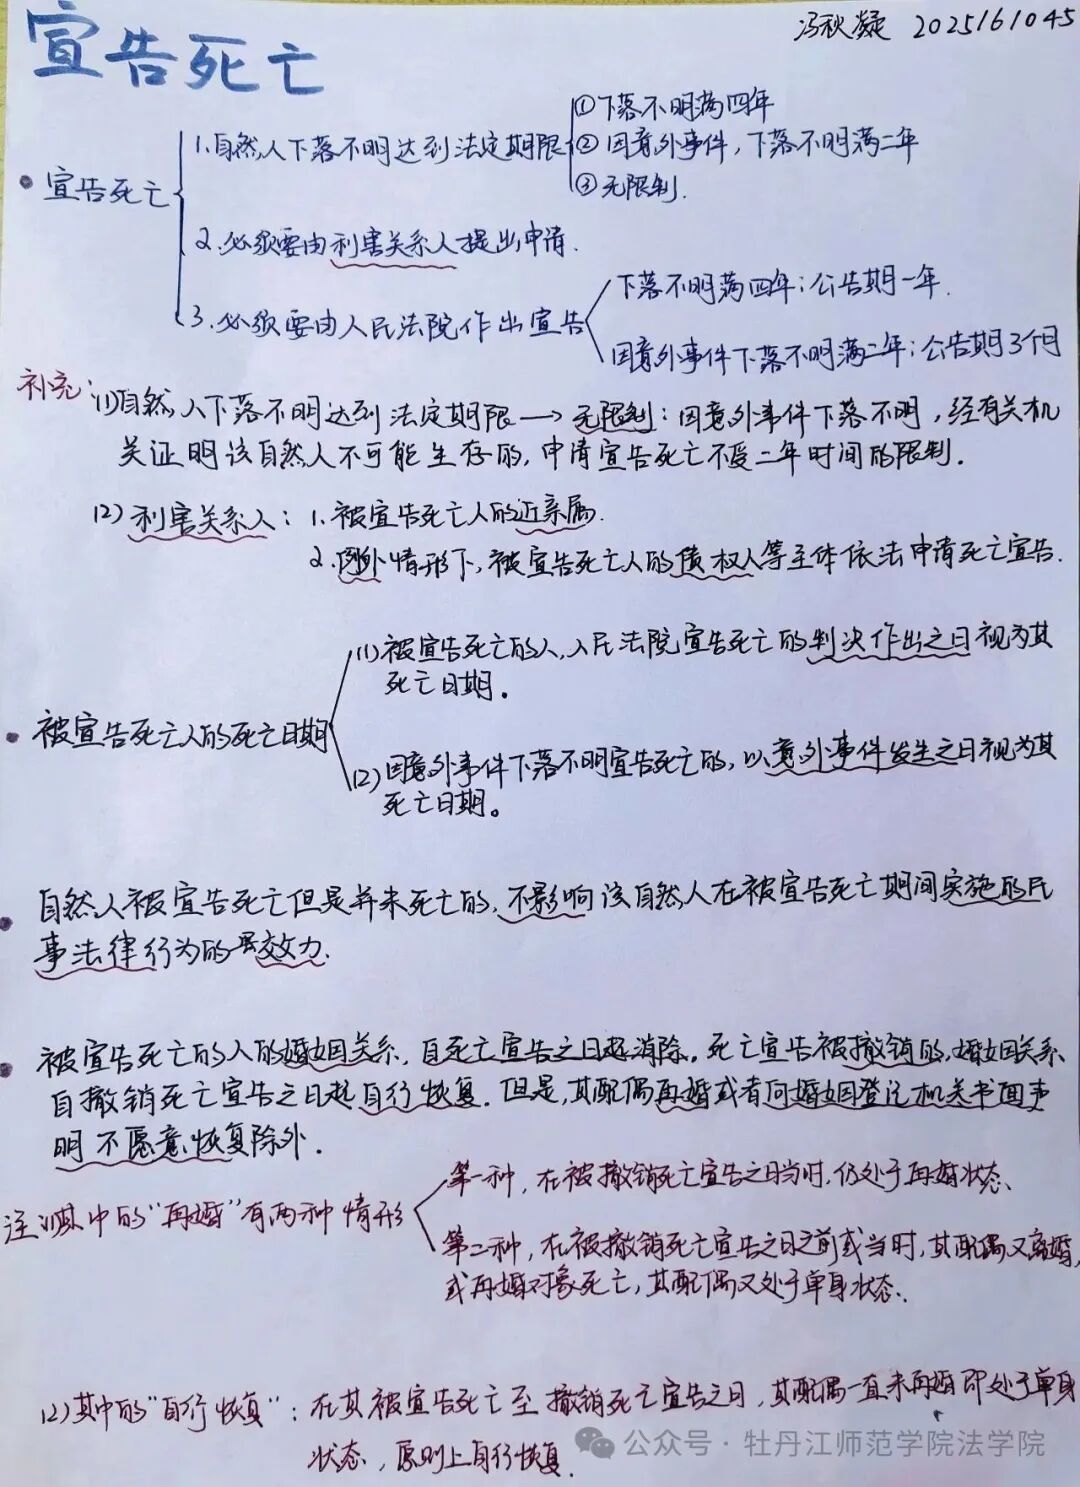 冯秋凝 2025161045
宣告死亡
①下落不明满四年
1.自然人下落不明达到法定期限
②因意外事件，下落不明满二年
③无限制.
宣告死亡
2.必须要由利害关系人提出申请.
下落不明满四年：公告期一年.
3.必须要由人民法院作出宣告
因意外事件下落不明满二年：公告期3个月
补充：(1)自然人下落不明达到法定期限→无限制：因意外事件下落不明，经有关机
关证明该自然人不可能生存的，申请宣告死亡不受二年时间的限制.
(2)利害关系人：1.被宣告死亡人的近亲属.
2.例外情形下，被宣告死亡人的债权人等主体依法申请死亡宣告.
(1)被宣告死亡的人，人民法院宣告死亡的判决作出之日视为其
死亡日期。
被宣告死亡人的死亡日期
(2)因意外事件下落不明宣告死亡的，以意外事件发生之日视为其
死亡日期。
自然人被宣告死亡但是并未死亡的，不影响该自然人在被宣告死亡期间实施的民
事法律行为的效力.
被宣告死亡的人的婚姻关系，自死亡宣告之日起消除.死亡宣告被撤销的，婚姻关系
自撤销死亡宣告之日起自行恢复.但是，其配偶再婚或者向婚姻登记机关书面声
明不愿意恢复除外.
第一种，在被撤销死亡宣告之日当时，仍处于再婚状态、
注(1)其中的“再婚”有两种情形
第二种，在被撤销死亡宣告之日之前或当时，其配偶又离婚，
或再婚对象死亡，其配偶又处于单身状态.
(2)其中的“自行恢复”：在其被宣告死亡至撤销死亡宣告之日，其配偶一直未再婚即处于单身
状态，原则上自行恢复.
公众号·牡丹江师范学院法学院